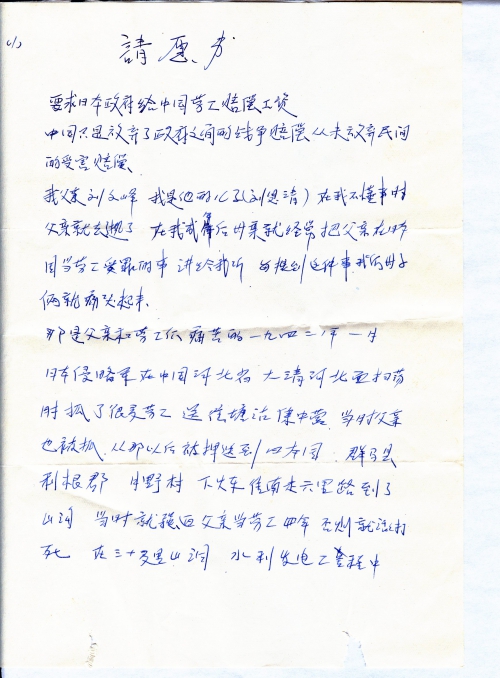 (1)
請愿书
要求日本政府给中国劳工赔偿工资
中国只是放弃了政府之间的战争赔偿从未放弃民间
的受害赔偿
我父亲刘文峰 我是他的儿子(刘思清)在我不懂事时
父亲就去逝了 在我成年后母亲就经常把父亲在日本
国当劳工受罪的事讲给我听 每提到这种事我们母子
俩就痛哭起来、
那是父亲和劳工们痛苦的一九四三年一月
日本侵略军在中国河北省大清河北亚扫荡
时抓了很多劳工 送往塘沽集中营 当时父亲
也被抓 从那以后被押送到日本国 群马县
利根郡 月野村 下火车往南走六里路到了
山洞 当时就强迫父亲当劳工四年 否则就活打
死 在三十多里山洞 水利发电工程中